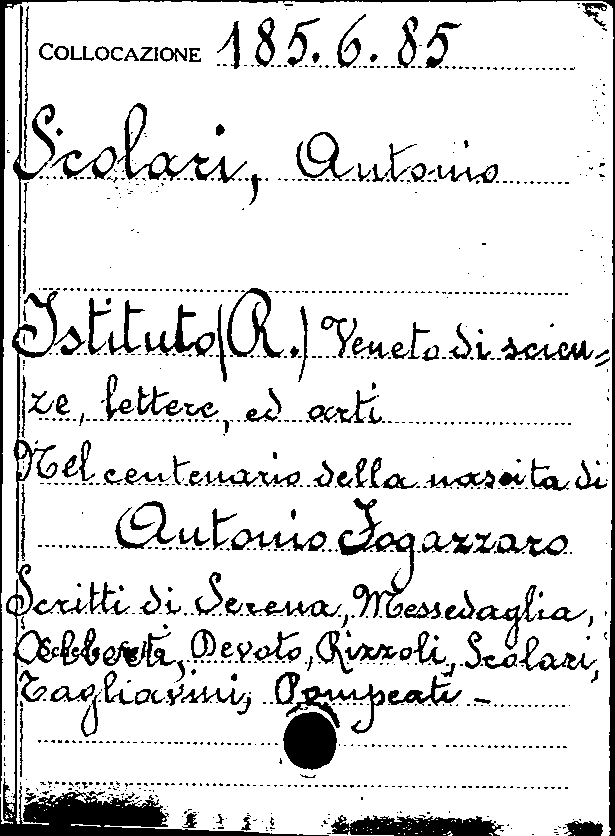 COLLOCAZIONE 185.6.85
Scolari, Antonio
Istituto (R.) Veneto di scien=
ze, lettere, ed arti
Nel centenario della nascita di
Antonio Fogazzaro
Scritti di Serena, Messedaglia,
Devoto, Rizzoli, Scolari,
Tagliavini, Pompeati -